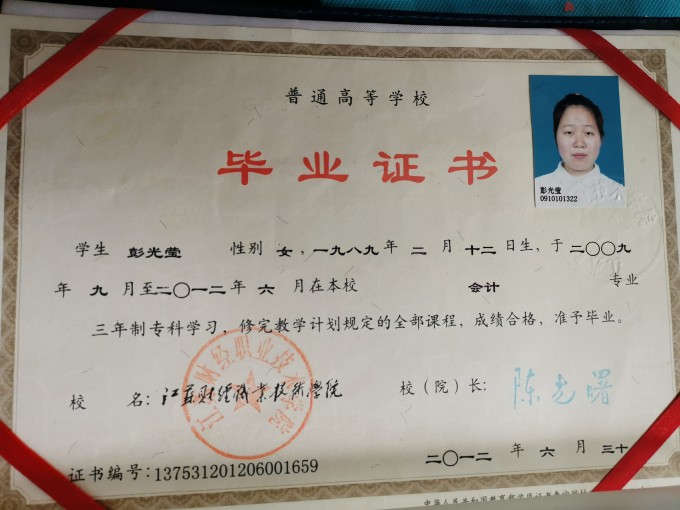 普通高等学校
毕业证书
彭光莹
0910101322
学生 彭光莹 性别 女，一九八九年 二 月 十二 日生，于 二〇〇九
年 九 月至二〇一二年 六 月在本校 会计 专业
三年制专科学习，修完教学计划规定的全部课程，成绩合格，准予毕业。
校 名：江苏财经职业技术学院 校（院）长：陈光曙
江苏财经职业技术学院
二〇一二 年 六 月 三十
证书编号：137531201206001659